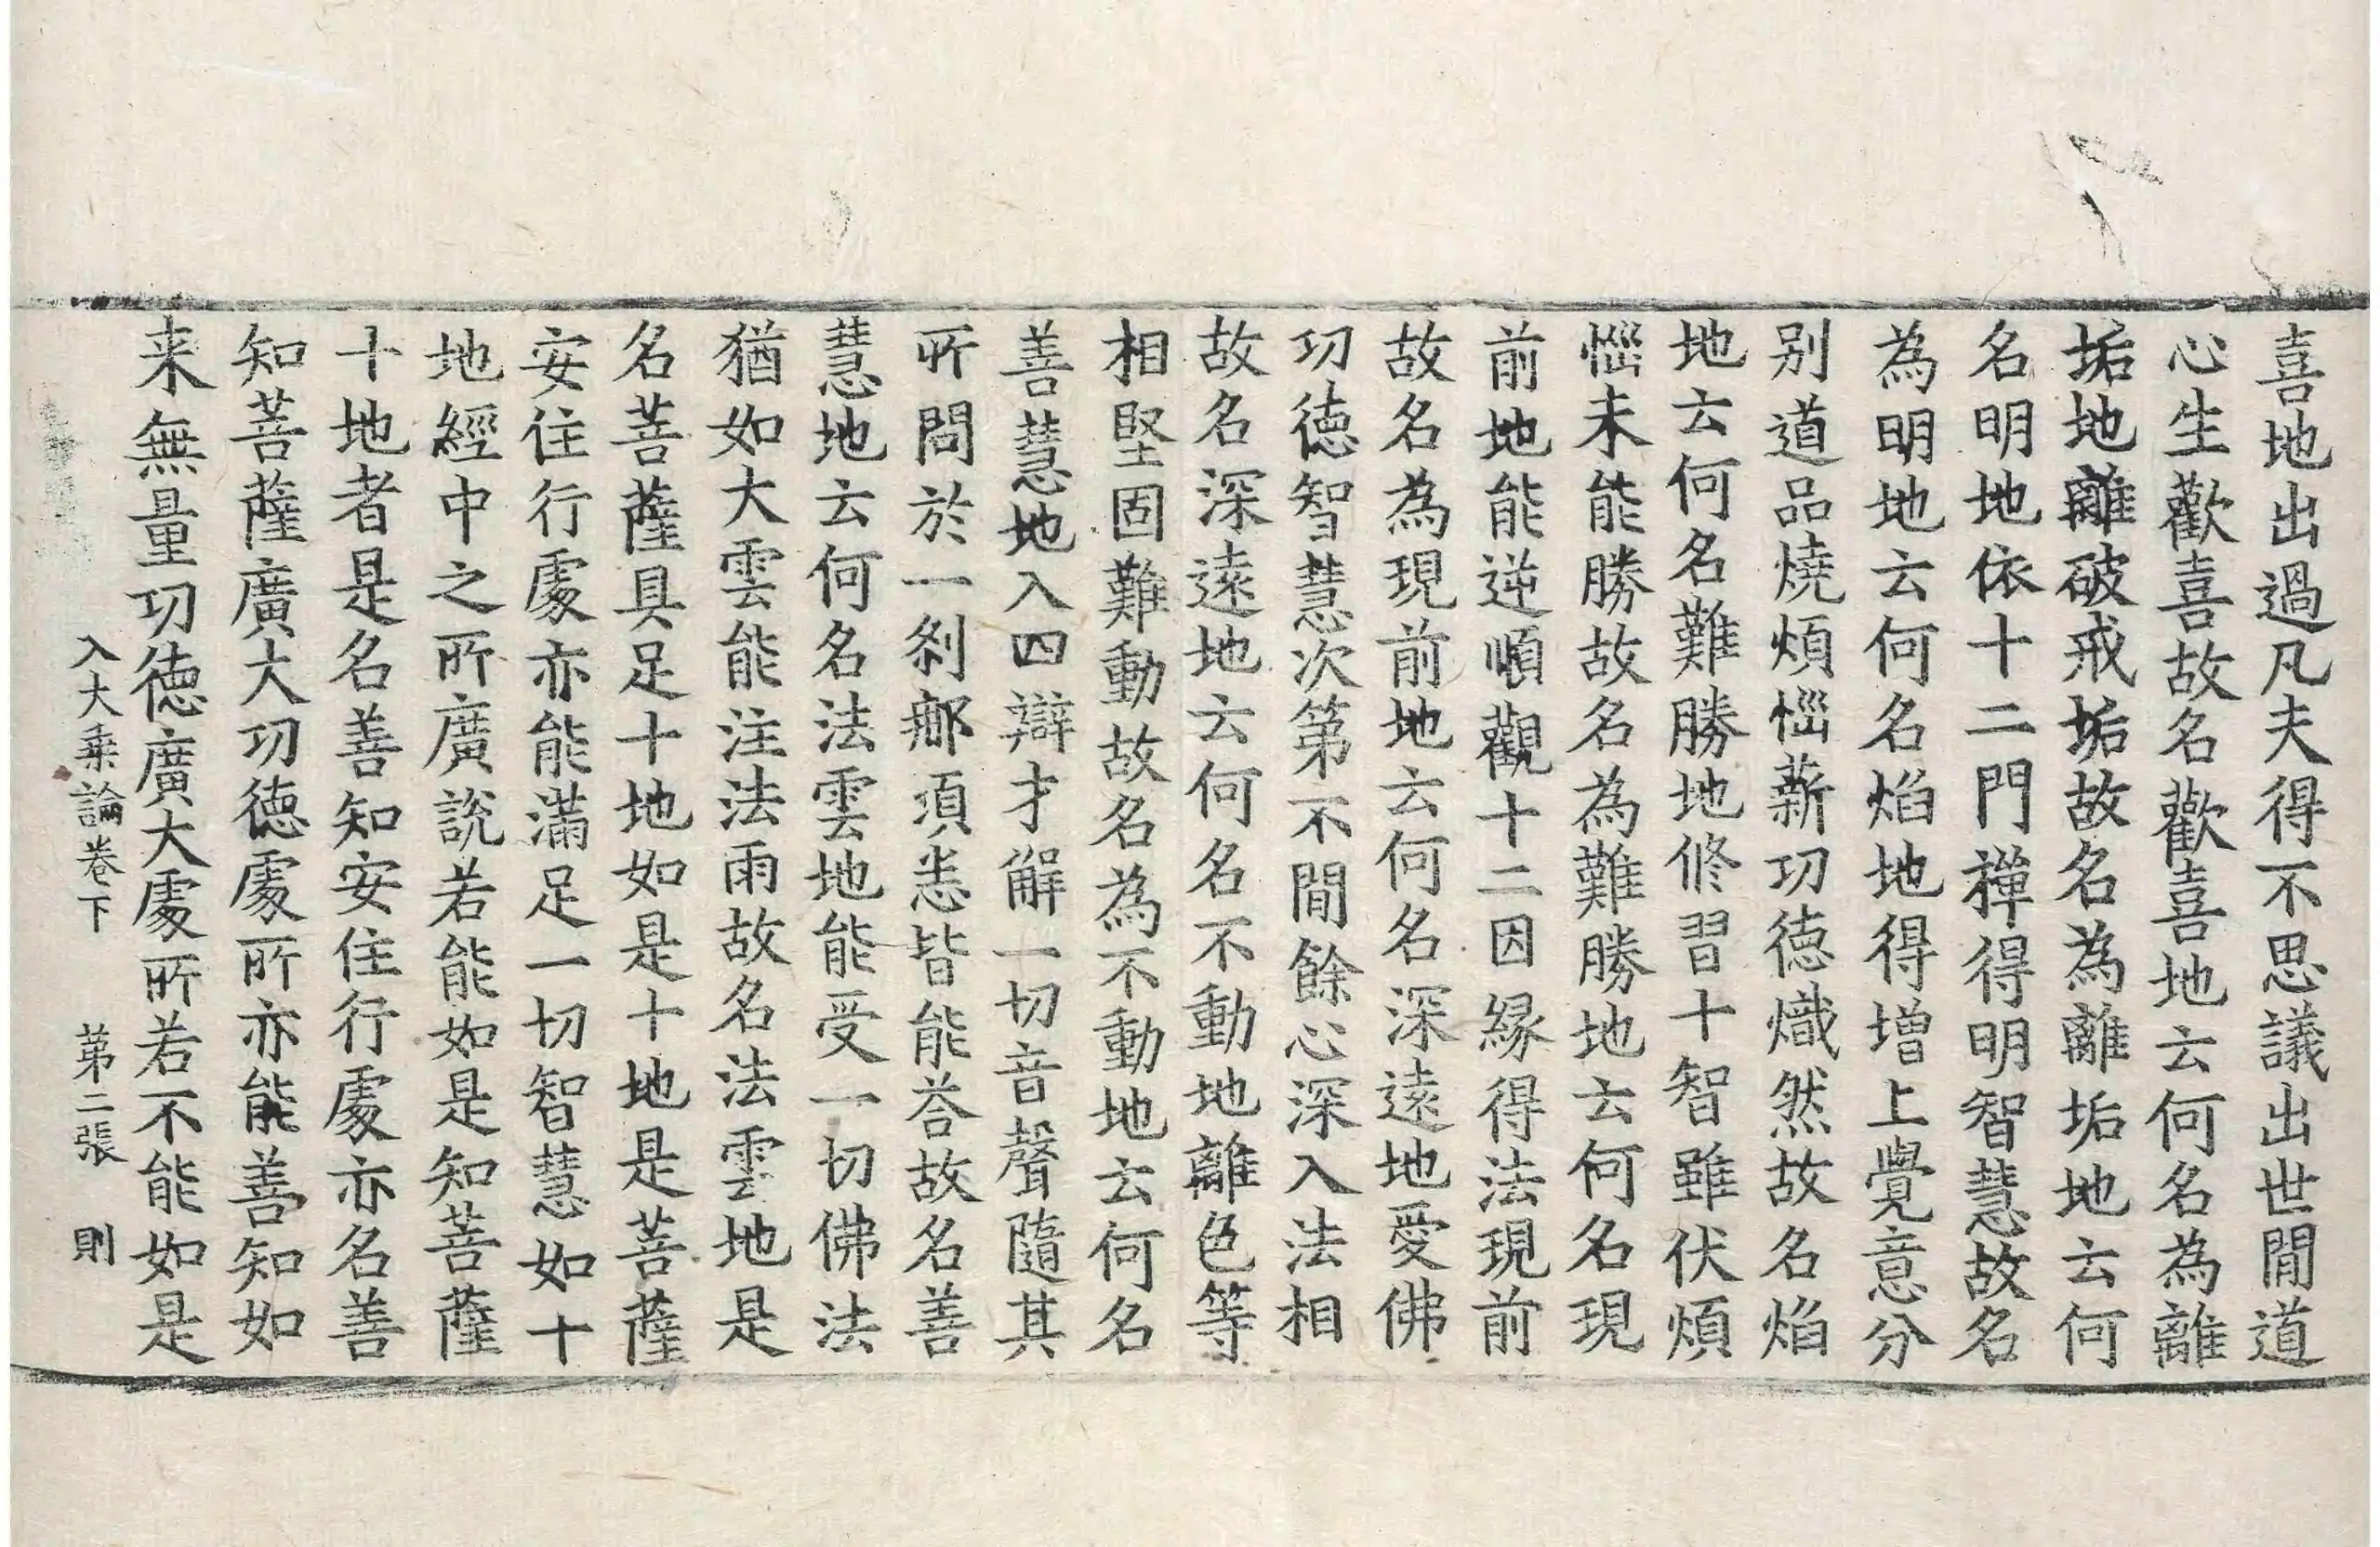 喜地出過凡夫得不思議出世間道
心生歡喜故名歡喜地云何名為離
垢地離破戒垢故名為離垢地云何
名明地依十二門禪得明智慧故名
為明地云何名焰地得增上覺意分
别道品燒煩惱薪功徳熾然故名焰
地云何名難勝地修習十智雖伏煩
惱未能勝故名為難勝地云何名現
前地能逆順觀十二因縁得法現前
故名為現前地云何名深遠地愛佛
功徳智慧次第不間餘心深入法相
故名深遠地云何名不動地離色等
相堅固難動故名為不動地云何名
善慧地入四辯才解一切音聲隨其
所問於一剎𨚗湏恚皆能荅故名善
慧地云何名法雲地能受一切佛法
猶如大雲能注法雨故名法雲地是
名菩薩具足十地如是十地是菩薩
安住行處亦能滿足一切智慧如十
地經中之所廣說若能如是知菩薩
十地者是名善知安住行處亦名善
知菩薩廣大功徳處所亦能善知如
来無量功徳廣大處所若不能如是
入大乗論卷下　第二張　則